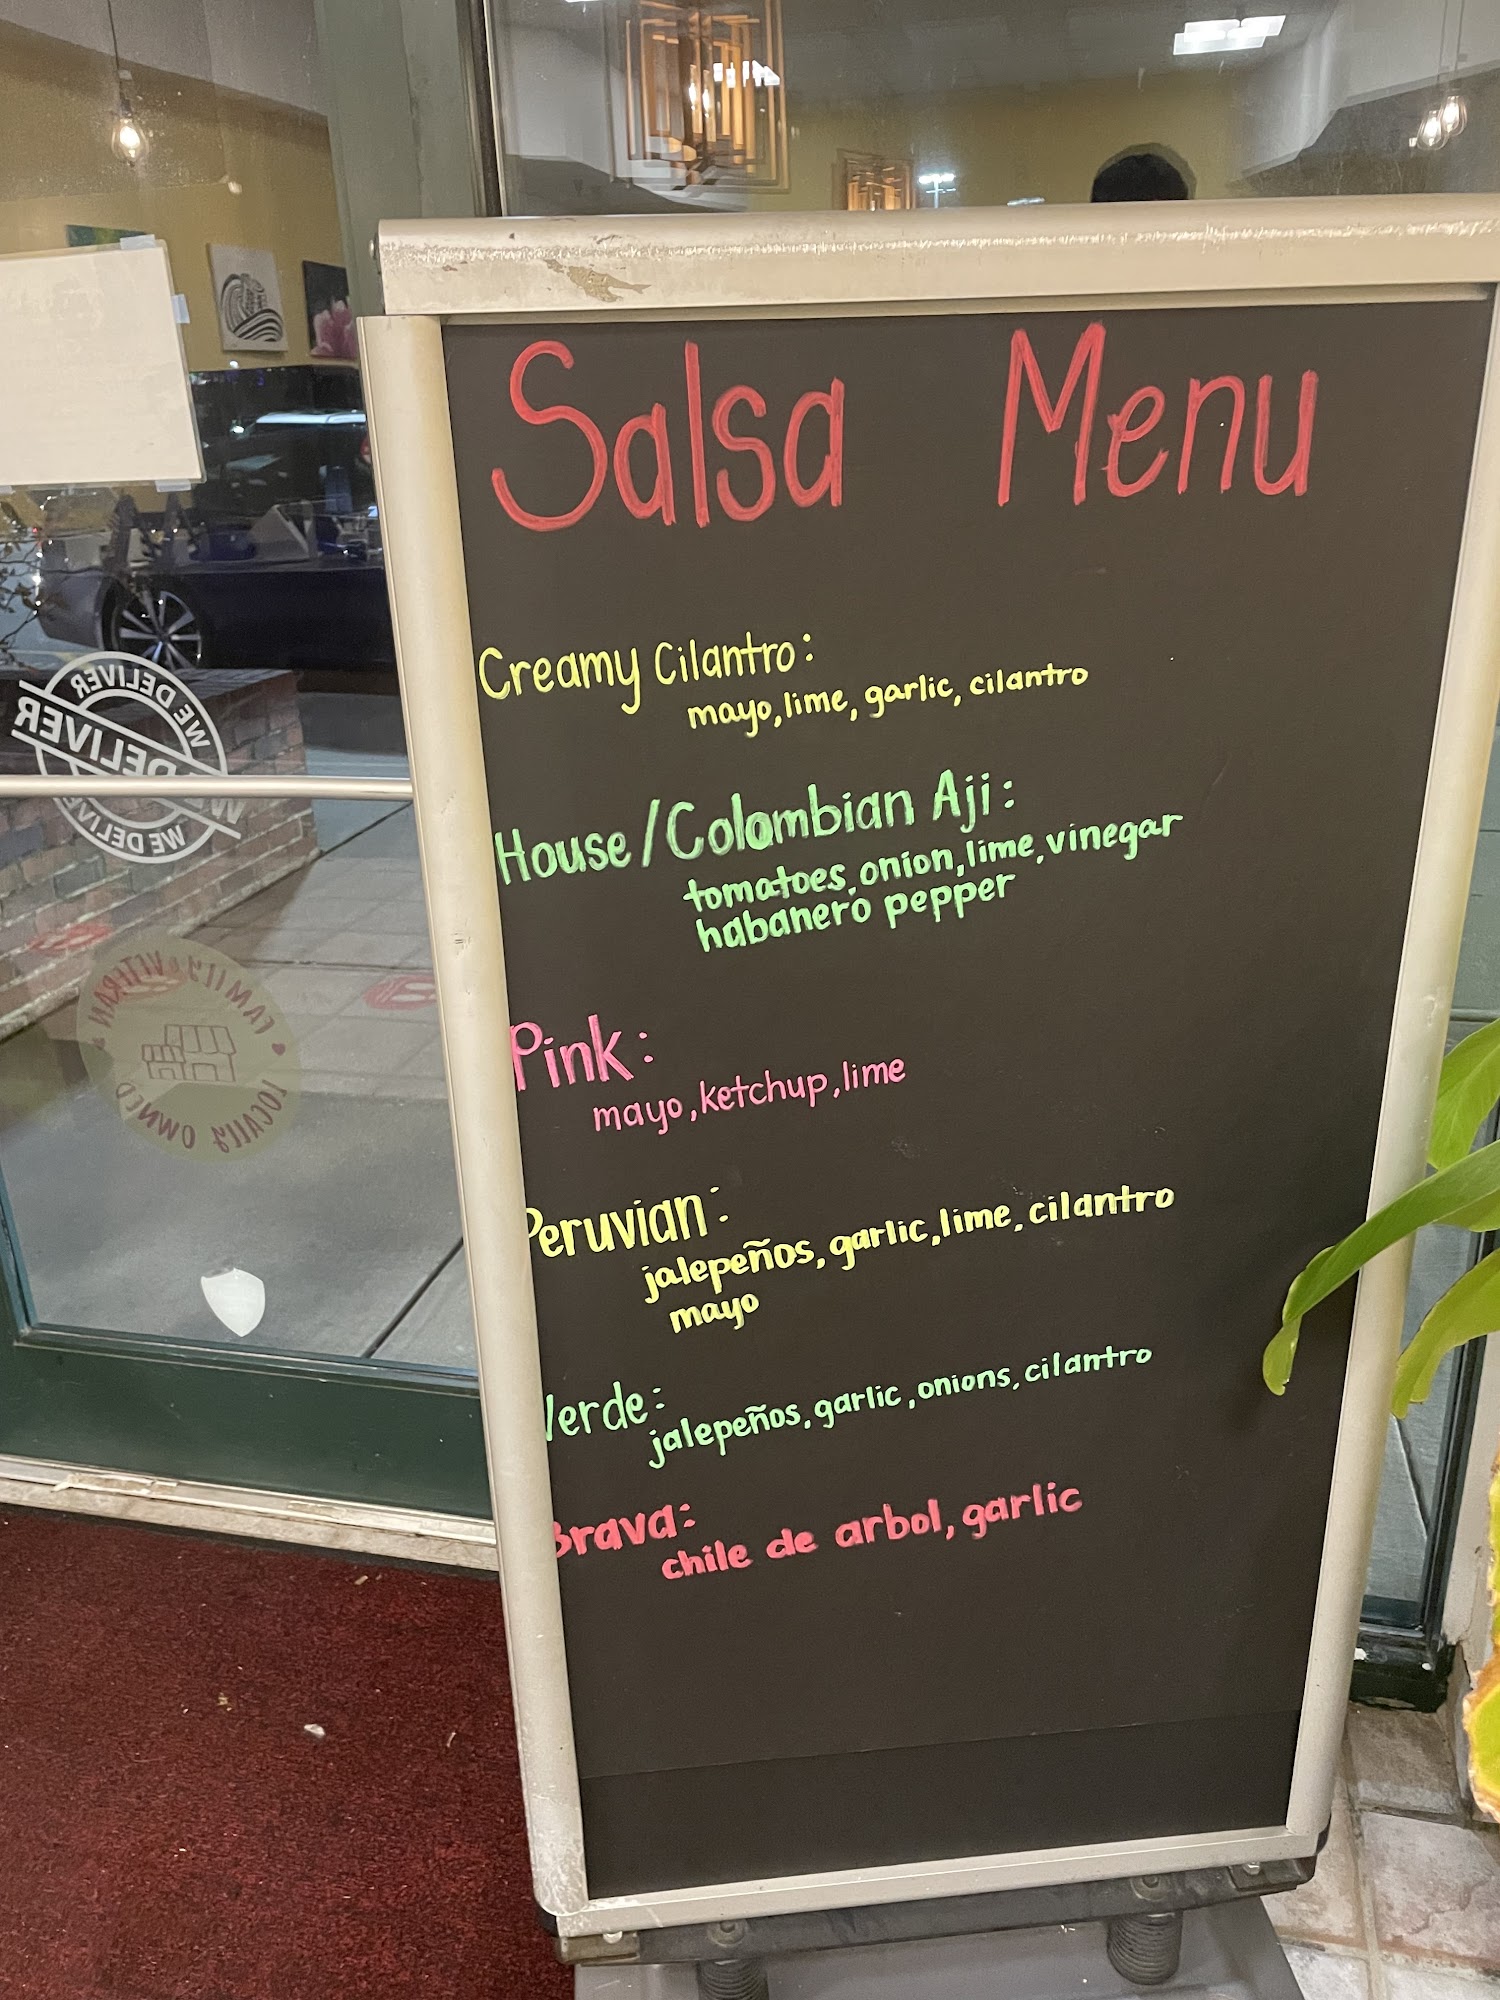 Salsa Menu
Creamy Cilantro:
mayo, lime, garlic, cilantro
House/Colombian Aji:
tomatoes, onion, lime, vinegar
habanero pepper
Pink:
mayo, ketchup, lime
Peruvian:
jalepeños, garlic, lime, cilantro
mayo
Verde:
jalepeños, garlic, onions, cilantro
Brava:
chile de arbol, garlic
WE DELIVER
WE DELIVER
FAMILY & VETERAN
LOCALLY OWNED